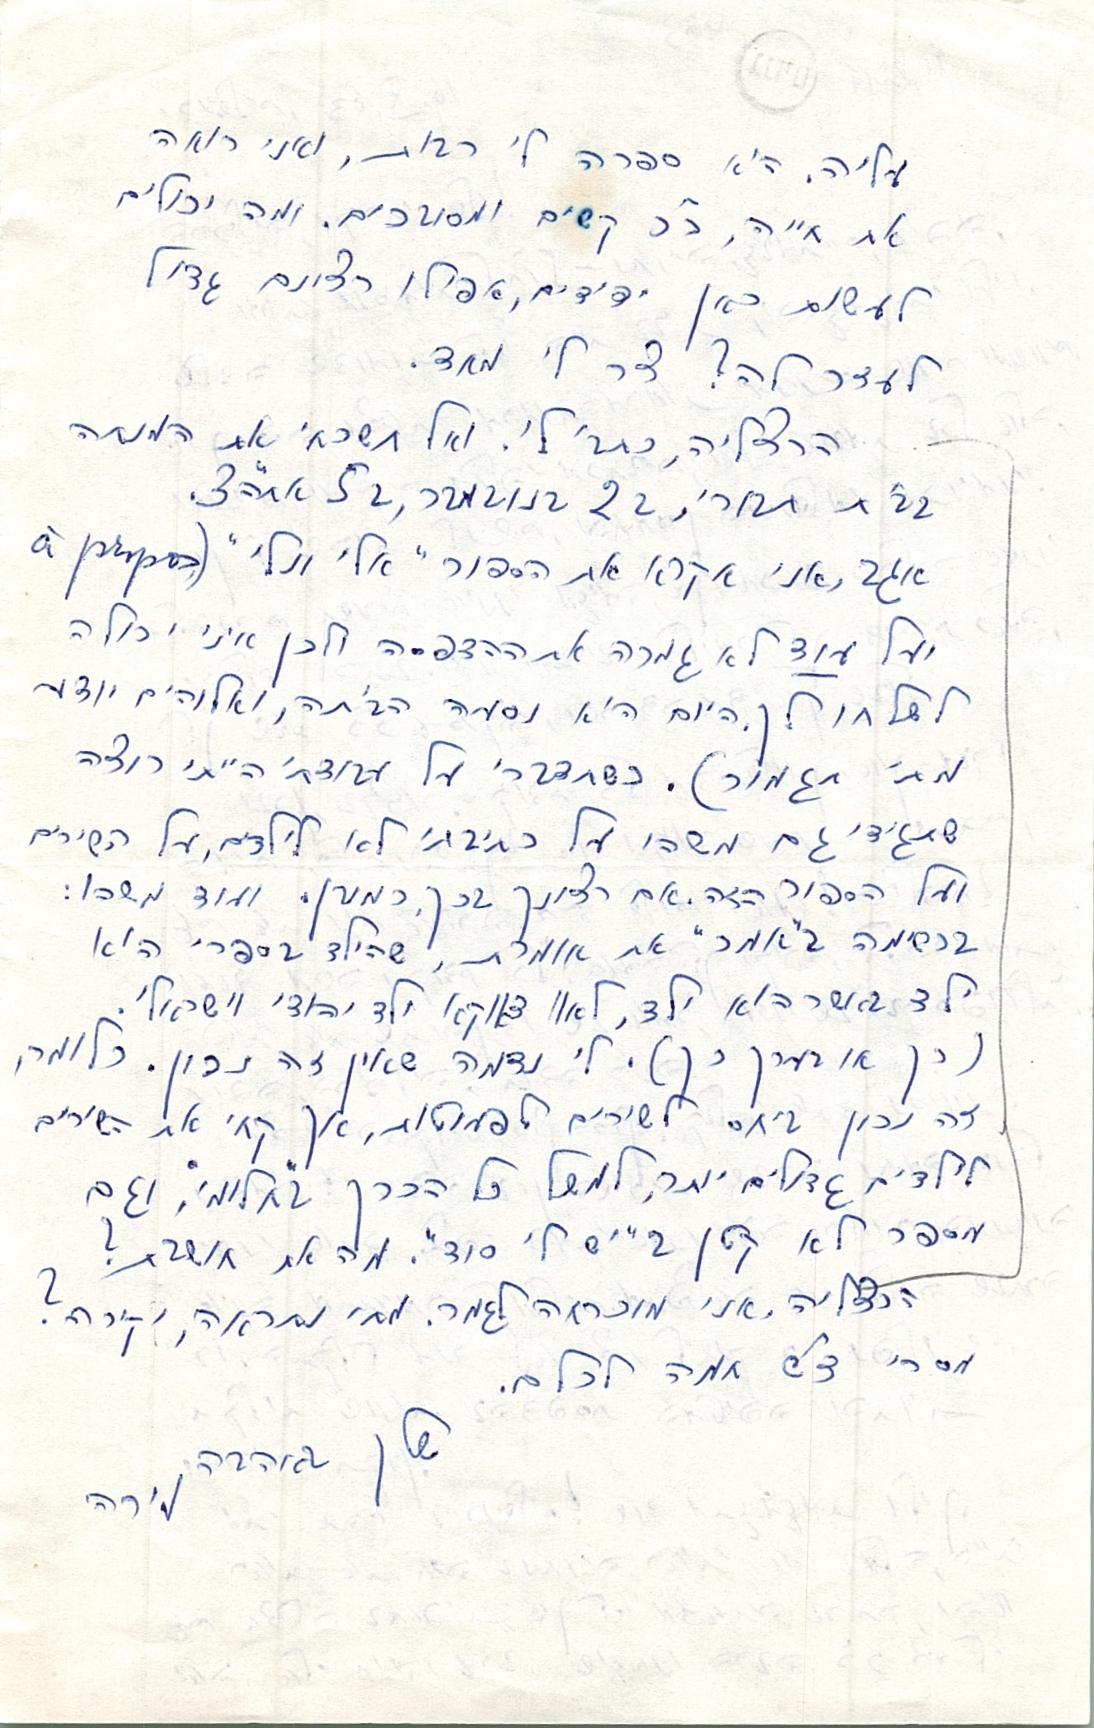 עליה. היא ספרה לי רבות, ואני רואה
את חייה, כ"כ קשים ומסובכים. ומה יכולים
לעשות כאן ידידים, אפילו רצונם גדול
לעזר לה? צר לי מאד.
הרצליה, כתבי לי. ואל תשכחי את המנחה
בבית תבורי, ב 2 בנובמבר, ב 5 אחה"צ.
אגב, אני אקרא את הספור "אלי ונלי" (à propos
יעל עוד לא גמרה את ההדפסה ולכן איני יכולה
לשלחו לך. היום היא נסעה הביתה, ואלוהים יודע
מתי תגמור). כשתדברי על עבודתי הייתי רוצה
שתגידי גם משהו על כתיבתי לא לילדים, על השירים
ועל הספור הזה. אם רצונך בכך, כמובן. ועוד משהו:
ברשימה ב"אומר" את אומרת, שהילד בספרי הוא
ילד באשר הוא ילד, לאו דוקא ילד יהודי וישראלי.
(כך או בערך כך). לי נדמה שאין זה נכון. כלומר,
זה נכון ביחס לשירים לפעוטות, אך קחי את השירים
לילדים גדולים יותר, למשל כל הכרך ב"חלומי", וגם
מספר לא קטן ב"יש לי סוד". מה את חושבת?
הרצליה, אני מוכרחה לגמר. מתי נתראה, יקירה?
מסרי ד"ש חמה לכלם.
שלך באהבה,
מירה